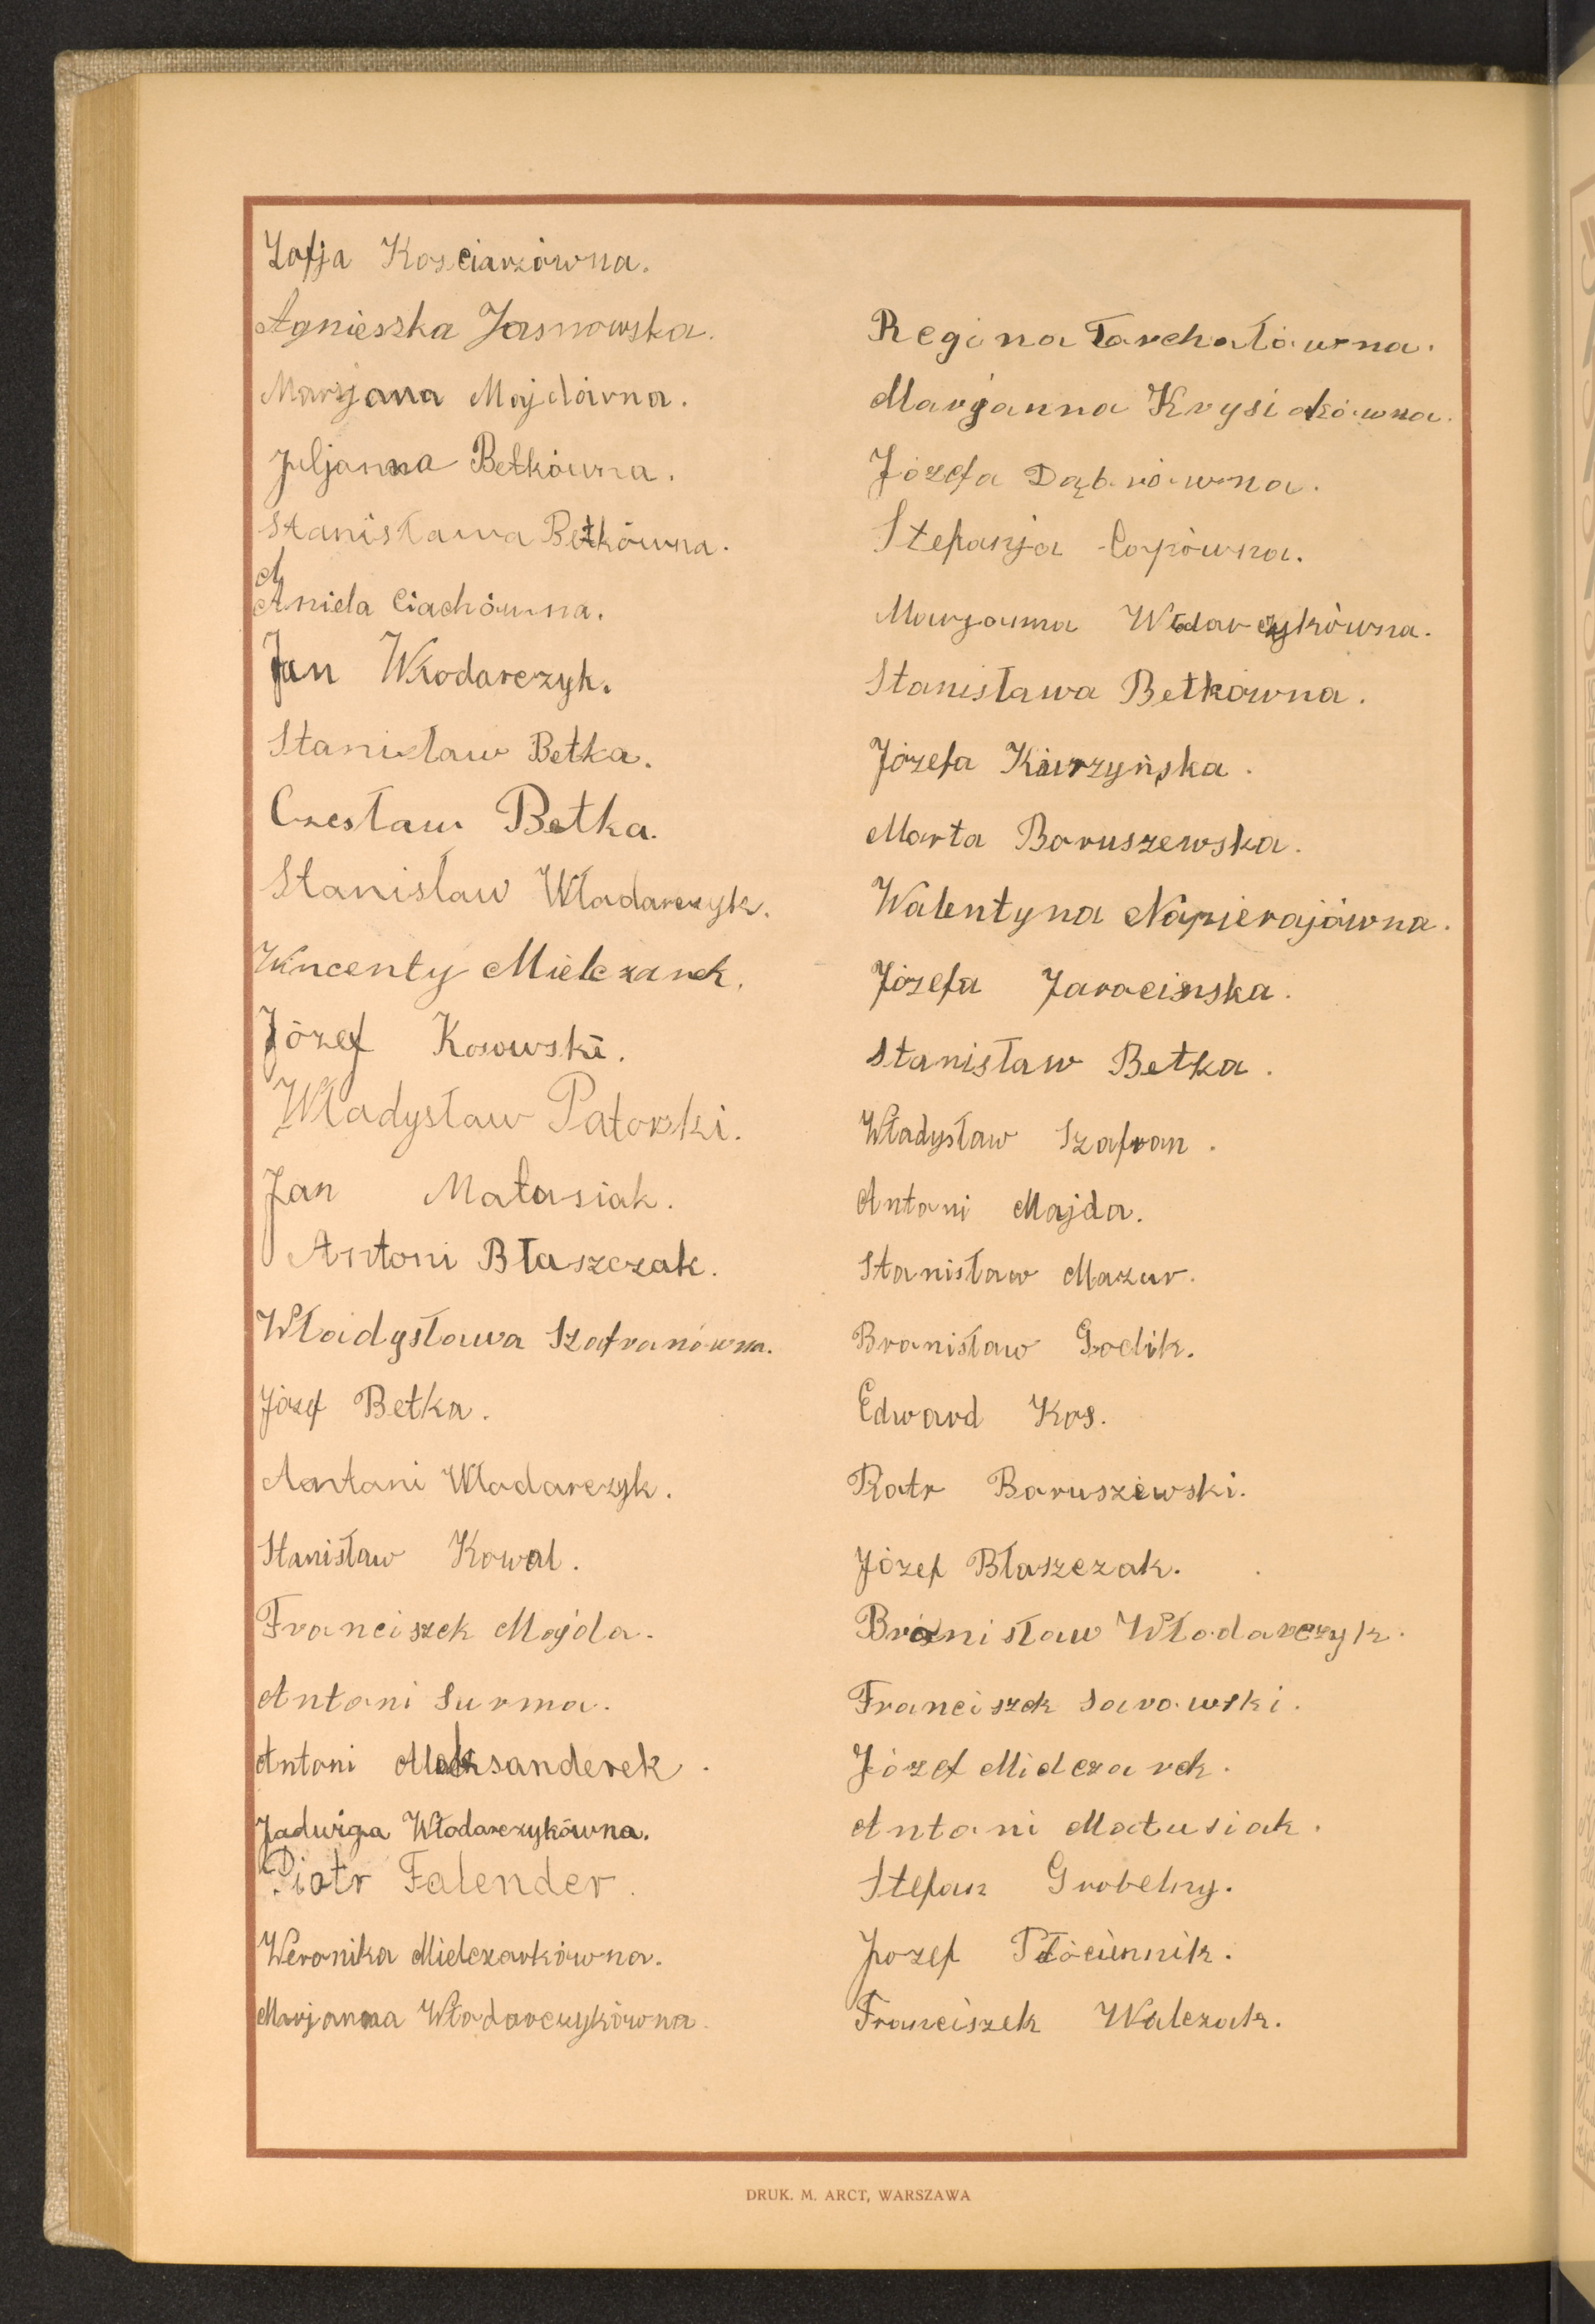 Zofja Kościarzówna.
Agnieszka Jasnowska.
Marjana Majdówna.
Juljanna Betkówna.
Stanisława Betkówna.
Aniela Ciachówna.
Jan Włodarczyk.
Stanisław Betka.
Czesław Betka.
Stanisław Włodarczyk.
Wincenty Mielczarek.
Józef Kosowski.
Władysław Patorski.
Jan Matusiak.
Antoni Błaszczak.
Władysława Szafranówna.
Józef Betka.
Antoni Włodarczyk.
Stanisław Kowal.
Franciszek Majda.
Antoni Surma.
Antoni Aleksanderek.
Jadwiga Włodarczykówna.
Piotr Falender.
Weronika Mielczarkówna.
Marjanna Włodarczykówna.
Regina Tarchałówna.
Marjanna Krysiakówna.
Józefa Dąbrówna.
Stefanja Copówna.
Marjanna Włodarczykówna.
Stanisława Betkówna.
Józefa Kurzyńska.
Marta Boruszewska.
Walentyna Napierajówna.
Józefa Jarocińska.
Stanisław Betka.
Władysław Szafran.
Antoni Majda.
Stanisław Mazur.
Bronisław Godik.
Edward Kos.
Piotr Boruszewski.
Józef Błaszczak.
Bronisław Włodarczyk.
Franciszek Sarowski.
Józef Mielczarek.
Antoni Matusiak.
Stefan Grobelny.
Jozef Płóciennik.
Franciszek Walczak.
DRUK. M. ARCT, WARSZAWA